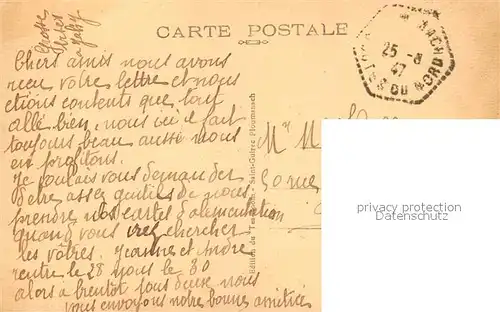 CARTE POSTALE
Grosses
bises
a Jacky
Chers amis nous avons
recu votre lettre et nous
etions contents que tout
allé bien, nous ici il fait
toujours beau aussi nous
en profitons.
Je voulais vous demander
d'etre assez gentils de nous
prendre nos cartes d'alimentation
quand vous irez chercher
les vôtres. Jeanne et André
rentre le 28 nous le 30
alors a bientot tous deux nous
vous envoyons notre bonne amitiée
25 -8
47
DU NORD
Ploumanach
Mr M
privacy protection
Datenschutz